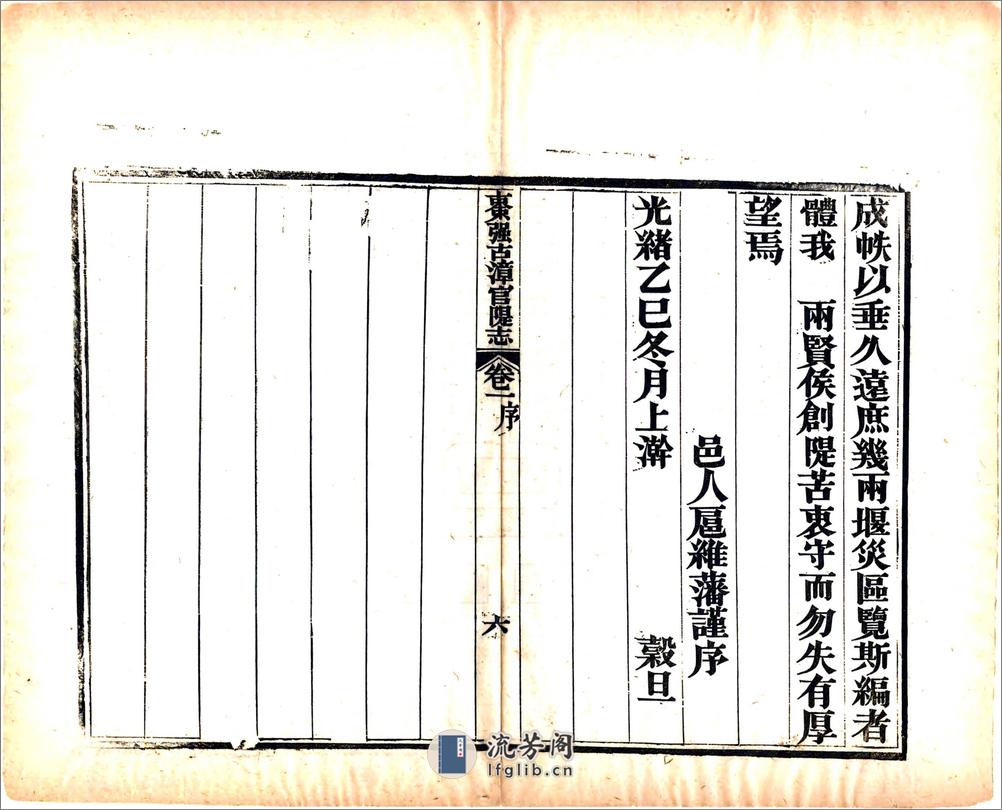 成帙以垂久遠庶幾兩堰災區覽斯編者
體我 兩賢侯創隄苦衷守而勿失有厚
望焉
邑人扈維藩謹序
光緒乙巳冬月上澣 穀旦
棗强古漳官隄志 卷一序 六
流芳阁
lfglib.cn